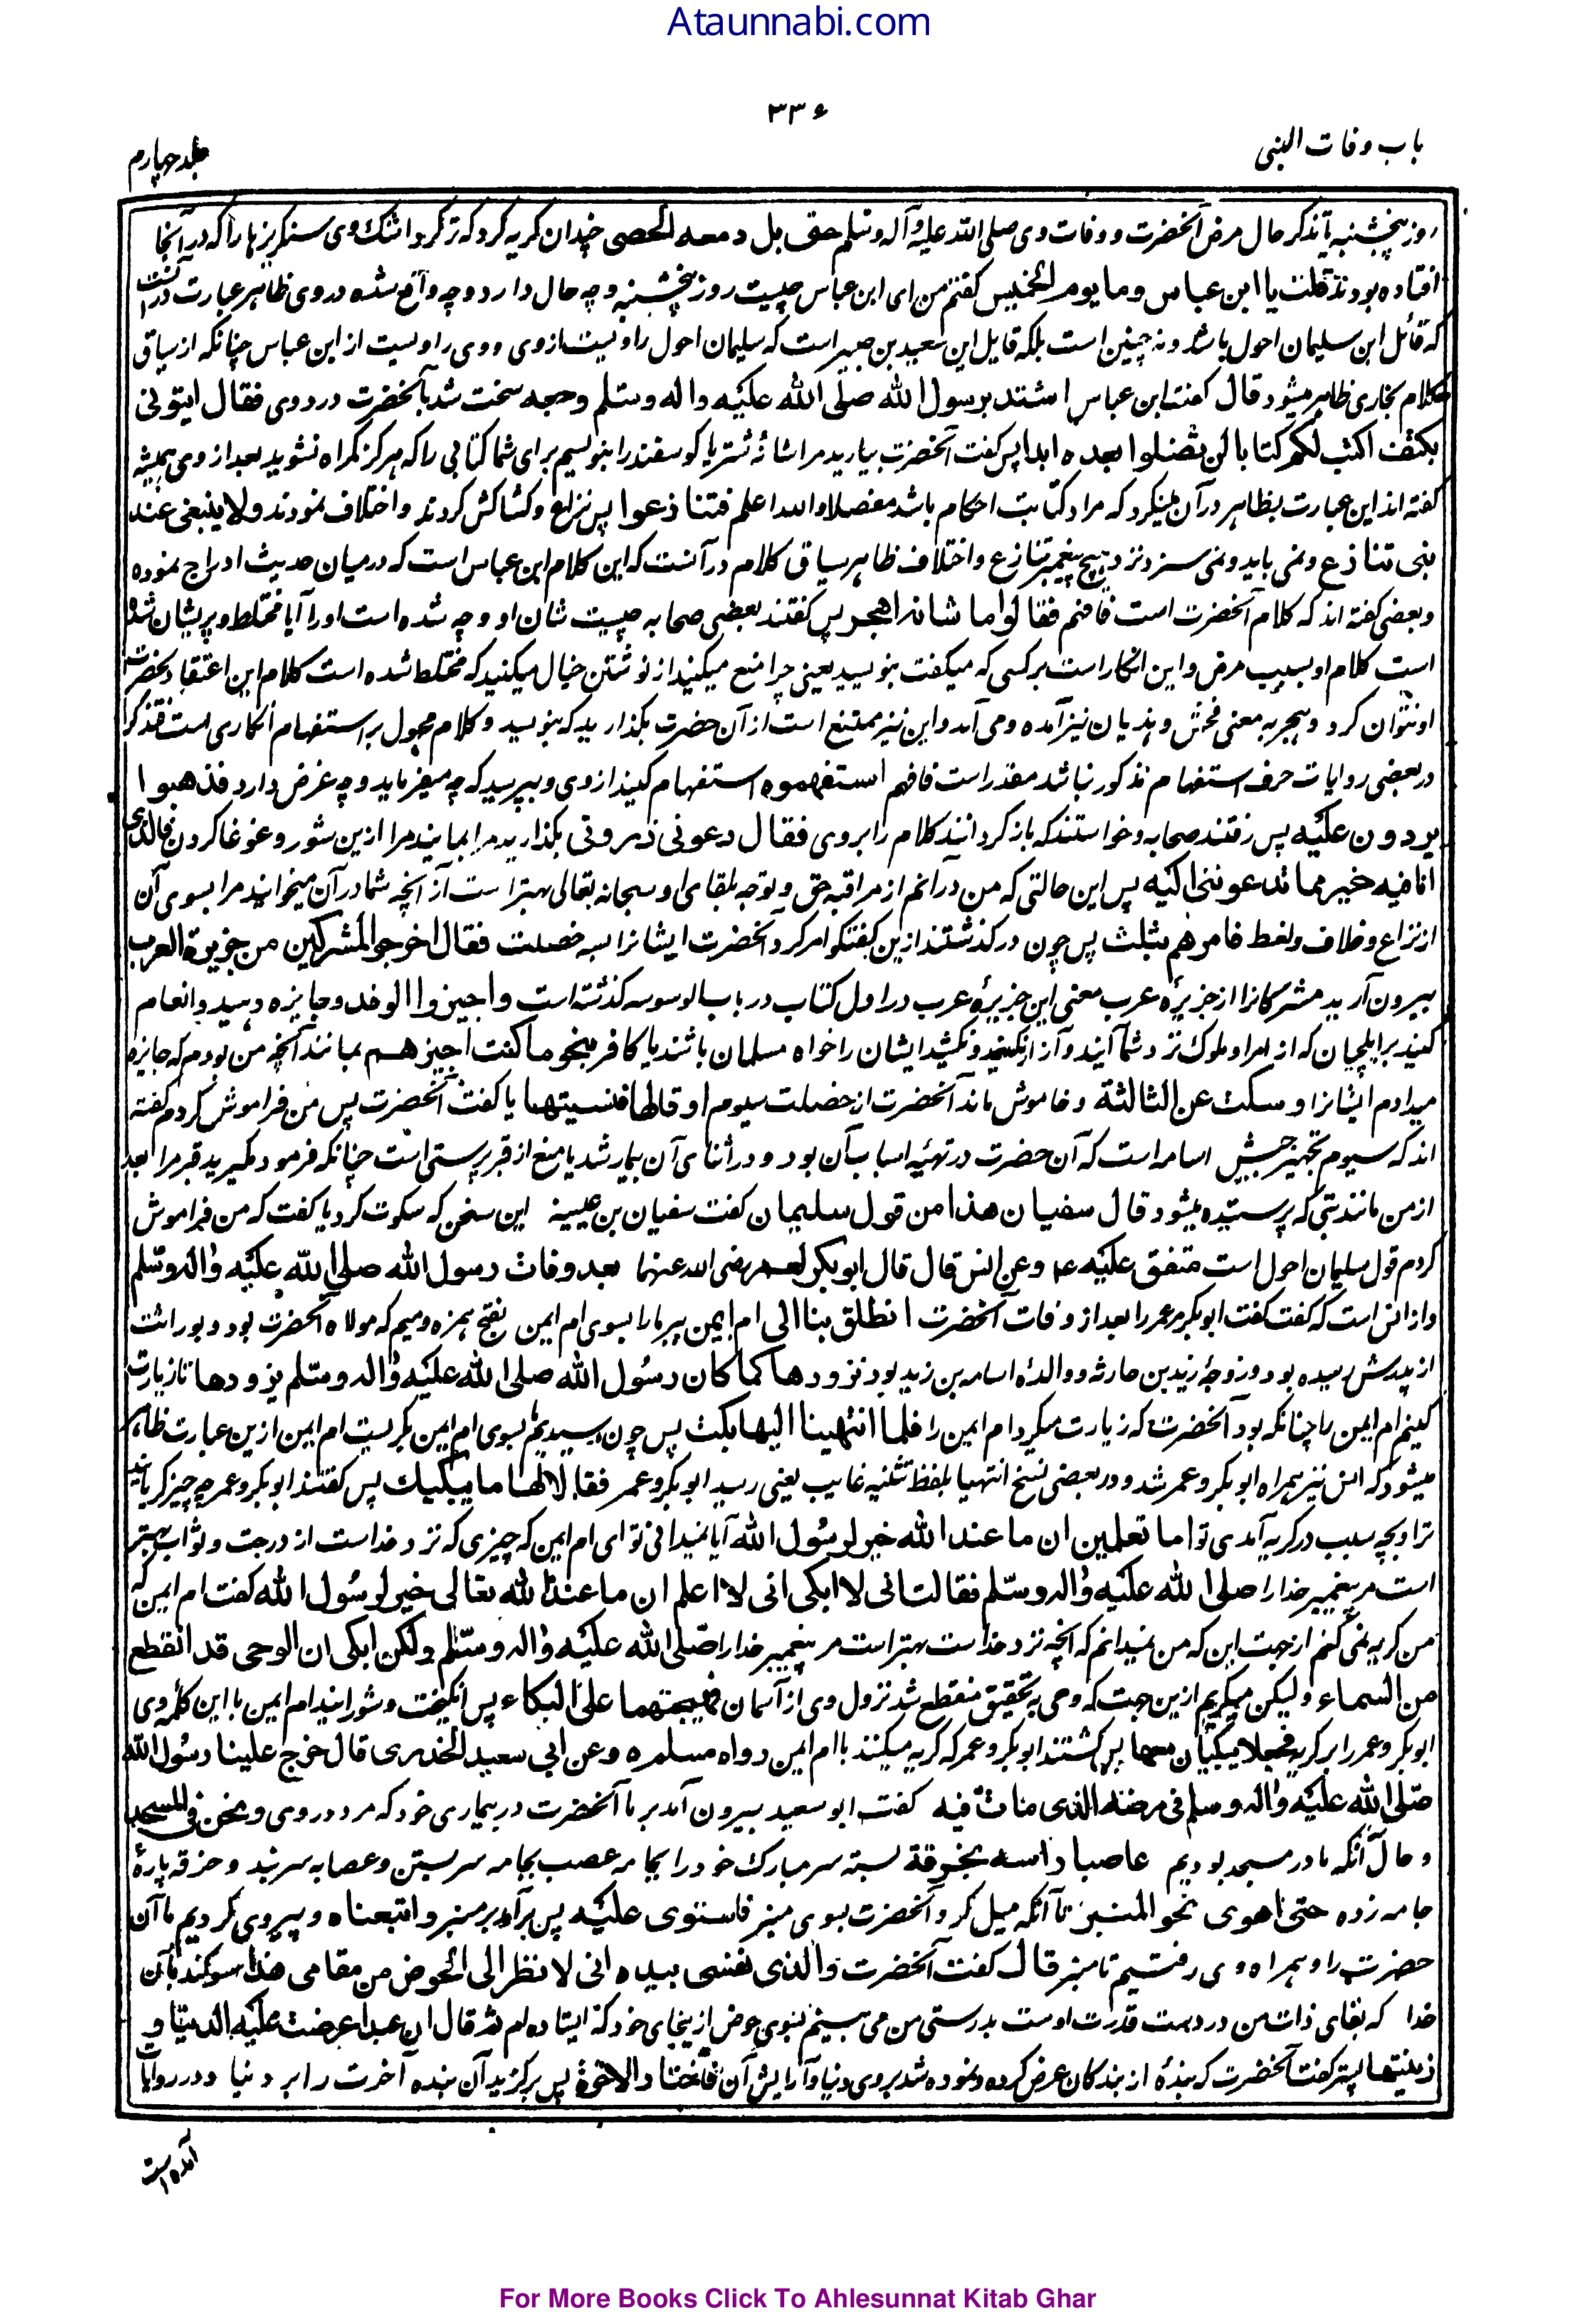 Ataunnabi.com
۳۳۶
باب وفات النبی
جلد چهارم
روز پنجشنبه یا بتذکر حال مرض آنحضرت و وفات وی صلی الله علیه وآله وسلم حتی بل دمعه الحصی چندان گریه کرد که تر کرد اشک وی سنگریزها را که در آنجا
افتاده بودند قلت یا ابن عباس وما یوم الخمیس گفتم من ای ابن عباس چیست روز پنجشنبه و چه حال دارد و چه واقع شده در وی ظاهر عبارت در آنست
که قائل ابن سلیمان احول باشد و نه چنین است بلکه قایل این سعید بن جبیر است که سلیمان احول راویست از وی و وی راویست از ابن عباس چنانکه از سیاق
کلام بخاری ظاهر میشود قال گفت ابن عباس اشتد برسول الله صلی الله علیه واله وسلم وجعه سخت شد بآنحضرت درد وی فقال ایتونی
بکتف اکتب لکم کتابا لن تضلوا بعده ابدا پس گفت آنحضرت بیارید مرا شانهٔ شتر یا گوسفند را بنویسم برای شما کتابی را که هرگز گمراه نشوید بعد از وی همیشه
گفته اند این عبارت بظاهر در آن مینگرد که مراد کتابت احکام باشد مفصلا والله اعلم فتنازعوا پس نزاع و کشاکش کردند و اختلاف نمودند ولا ینبغی عند
نبی تنازع و نمی باید و نمی سزد نزد هیچ پیغمبر تنازع و اختلاف ظاهر سیاق کلام در آنست که این کلام ابن عباس است که درمیان حدیث ادراج نموده
و بعضی گفته اند که کلام آنحضرت است فافهم فقالوا ما شانه اهجر پس گفتند بعضی صحابه چیست شان او و چه شده است او را آیا مختلط و پریشان شده
است کلام او بسبب مرض و این انکار است بر کسی که میگفت بنویسید یعنی چرا منع میکنید از نوشتن خیال میکنید که مختلط شده است کلام این اعتقاد بحضرت
او نتوان کرد و هجر به معنی فحش و هذیان نیز آمده و می آمد و این نیز ممتنع است از آن حضرت بگذارید که بنویسد و کلام محمول بر استفهام انکاری است فقذ کر
در بعضی روایات حرف استفهام مذکور نباشد مقدر است فافهم استفهموه استفهام کنید از وی و بپرسید که چه میفرماید و چه غرض دارد فذهبوا
یردون علیه پس رفتند صحابه و خواستند که باز گردانند کلام را بر وی فقال دعونی ذرونی بگذارید مرا بمانید مرا ازین شور و غوغا کردن فالذی
انا فیه خیر مما تدعوننی الیه پس این حالتی که من در آنم از مراقبه حق و توجه بلقای او سبحانه تعالی بهتر است از آنچه شما در آن میخوانید مرا بسوی آن
از نزاع و خلاف و لغط فامرهم بثلث پس چون در گذشتند ازین گفتگو امر کرد آنحضرت ایشانرا بسه خصلت فقال اخرجوا المشرکین من جزیرة العرب
بیرون آرید مشرکانرا از جزیرهٔ عرب معنی این جزیرهٔ عرب در اول کتاب در باب الوسوسه گذشته است واجیزوا الوفد و جایزه دهید و انعام
کنید بر ایلچیان که از امرا و ملوک نزد شما آیند و آزار نکنید و نکشید ایشان را خواه مسلمان باشند یا کافر بنحو ما کنت اجیزهم بمانند آنچه من بودم که جایزه
میدادم ایشانرا وسکت عن الثالثة و خاموش ماند آنحضرت از خصلت سیوم او قالها فنسیتها یا گفت آنحضرت پس من فراموش کردم گفته
اند که سیوم تجهیز جیش اسامه است که آن حضرت در تهیهٔ اسباب آن بود و در اثنای آن بیمار شد یا منع از قبر پرستی است چنانکه فرمود مگیرید قبر مرا بعد
از من مانند بتی که پرستیده میشود قال سفیان هذا من قول سلیمان گفت سفیان بن عیینه این سخن که سکوت کرد یا گفت که من فراموش
کردم قول سلیمان احول است متفق علیه ۴ وعن انس قال قال ابوبکر لعمر رضی الله عنهما بعد وفات رسول الله صلی الله علیه واله وسلم
و از انس است که گفت گفت ابوبکر مر عمر را بعد از وفات آنحضرت انطلق بنا الی ام ایمن ببر ما را بسوی ام ایمن بفتح همزه و میم که مولاه آنحضرت بود و بوراثت
از پدرش رسیده بود و زوجهٔ زید بن حارثه و والدهٔ اسامه بن زید بود نزورها کما کان رسول الله صلی الله علیه واله وسلم یزورها تا زیارت
کنیم ام ایمن را چنانکه بود آنحضرت که زیارت میکرد ام ایمن را فلما انتهینا الیها بکت پس چون رسیدیم بسوی ام ایمن بگریست ام ایمن ازین عبارت ظاهر
میشود که انس نیز همراه ابوبکر و عمر شد و در بعضی نسخ انتهیا بلفظ تثنیه غایب یعنی رسید ابوبکر و عمر فقالا لها ما یبکیک پس گفتند ابوبکر و عمر چه چیز گریانید
ترا و بچه سبب در گریه آمدی تو اما تعلمین ان ما عند الله خیر لرسول الله آیا نمیدانی تو ای ام ایمن که چیزی که نزد خداست از درجت و ثواب بهتر
است مر پیغمبر خدا را صلی الله علیه واله وسلم فقالت انی لا ابکی انی لا اعلم ان ما عند الله تعالی خیر لرسول الله گفت ام ایمن که
من گریه نمی کنم از جهت این که من نمیدانم که آنچه نزد خداست بهتر است مر پیغمبر خدا را صلی الله علیه واله وسلم ولکن ابکی ان الوحی قد انقطع
من السماء ولیکن میگریم ازین جهت که وحی به تحقیق منقطع شد نزول وی از آسمان فهیجتهما علی البکاء پس انگیخت و شورانید ام ایمن با این کلمهٔ وی
ابوبکر و عمر را بر گریه فجعلا یبکیان معها پس گشتند ابوبکر و عمر که گریه میکنند با ام ایمن رواه مسلم ۵ وعن ابی سعید الخدری قال خرج علینا رسول الله
صلی الله علیه واله وسلم فی مرضه الذی مات فیه گفت ابو سعید بیرون آمد بر ما آنحضرت در بیماری خود که مرد در وی ونحن فی المسجد
و حال آنکه ما در مسجد بودیم عاصبا راسه بخرقة بسته سر مبارک خود را بجامه عصب بجامه سر بستن و عصابه سر بند و خرقه پارهٔ
جامه زده حتی اهوی نحو المنبر تا آنکه میل کرد آنحضرت بسوی منبر فاستوی علیه پس برآمد بر منبر واتبعناه و پیروی کردیم ما آن
حضرت را و همراه وی رفتیم تا منبر قال گفت آنحضرت والذی نفسی بیده انی لانظر الی الحوض من مقامی هذا سوگند بآن
خدا که بقای ذات من در دست قدرت اوست بدرستی من می بینم بسوی حوض از ینجای خود که ایستاده ام ثم قال ان عبدا عرضت علیه الدنیا و
زینتها پستر گفت آنحضرت که بندهٔ از بندگان عرض کرده و نموده شد بروی دنیا و آرایش آن فاختار الاخرة پس برگزید آن بنده آخرت را بر دنیا و در روایا
آمده است
For More Books Click To Ahlesunnat Kitab Ghar